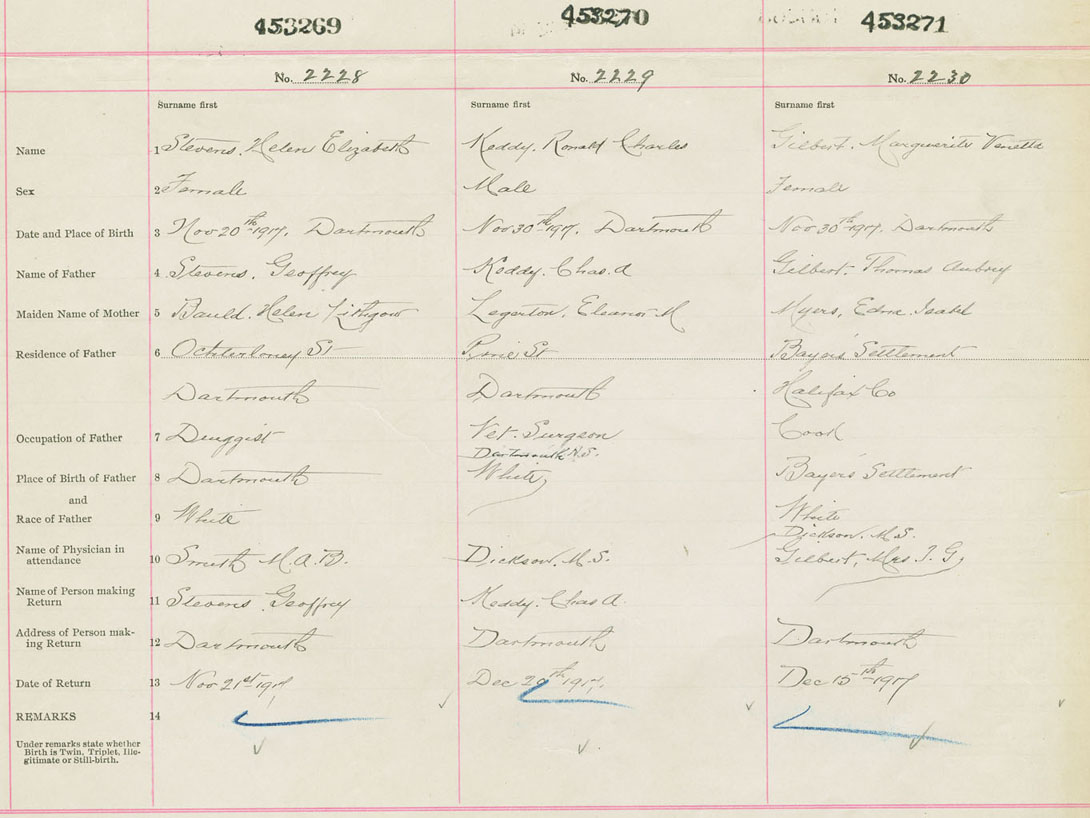 453269 453270 453271
No. 2228 No. 2229 No. 2230
Surname first Surname first Surname first
Name 1 Stevens, Helen Elizabeth Keddy, Ronald Charles Gilbert, Marguerite Venetta
Sex 2 Female Male Female
Date and Place of Birth 3 Nov 20th 1917, Dartmouth Nov 30th 1917, Dartmouth Nov 30th 1917, Dartmouth
Name of Father 4 Stevens, Geoffrey Keddy, Chas. A Gilbert, Thomas Aubrey
Maiden Name of Mother 5 Bauld, Helen Lithgow Legerton, Eleanor M Myers, Edna Isabel
Residence of Father 6 Ochterloney St Pine St Bayers Settlement
Dartmouth Dartmouth Halifax Co
Occupation of Father 7 Druggist Vet. Surgeon Cook
Dartmouth N.S.
Place of Birth of Father 8 Dartmouth White Bayers Settlement
and
Race of Father 9 White White
Dickson, M.S.
Name of Physician in
attendance 10 Smith M.A.B. Dickson, M.S. Gilbert, Mrs T. G.
Name of Person making
Return 11 Stevens, Geoffrey Keddy, Chas A.
Address of Person mak-
ing Return 12 Dartmouth Dartmouth Dartmouth
Date of Return 13 Nov 21st 1917 Dec 20th 1917, Dec 15th 1917
REMARKS 14
Under remarks state whether
Birth is Twin, Triplet, Ille-
gitimate or Still-birth.